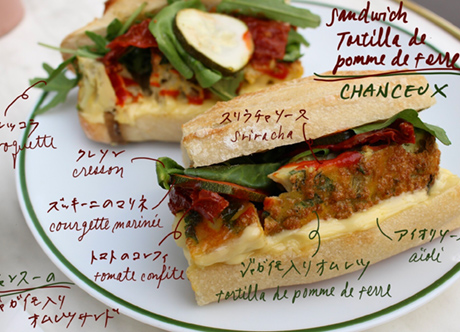 Sandwich
Tortilla de
pomme de terre
CHANCEUX
スリラチャソース
sriracha
ッコラ
oquette
クレソン
cresson
ズッキーニのマリネ
courgette marinée
トマトのコンフィ
tomate confite
ジャガイモ入りオムレツ
tortilla de pomme de terre
アイオリソース
aïoli
ンスーの
ガイモ入り
オムレツサンド